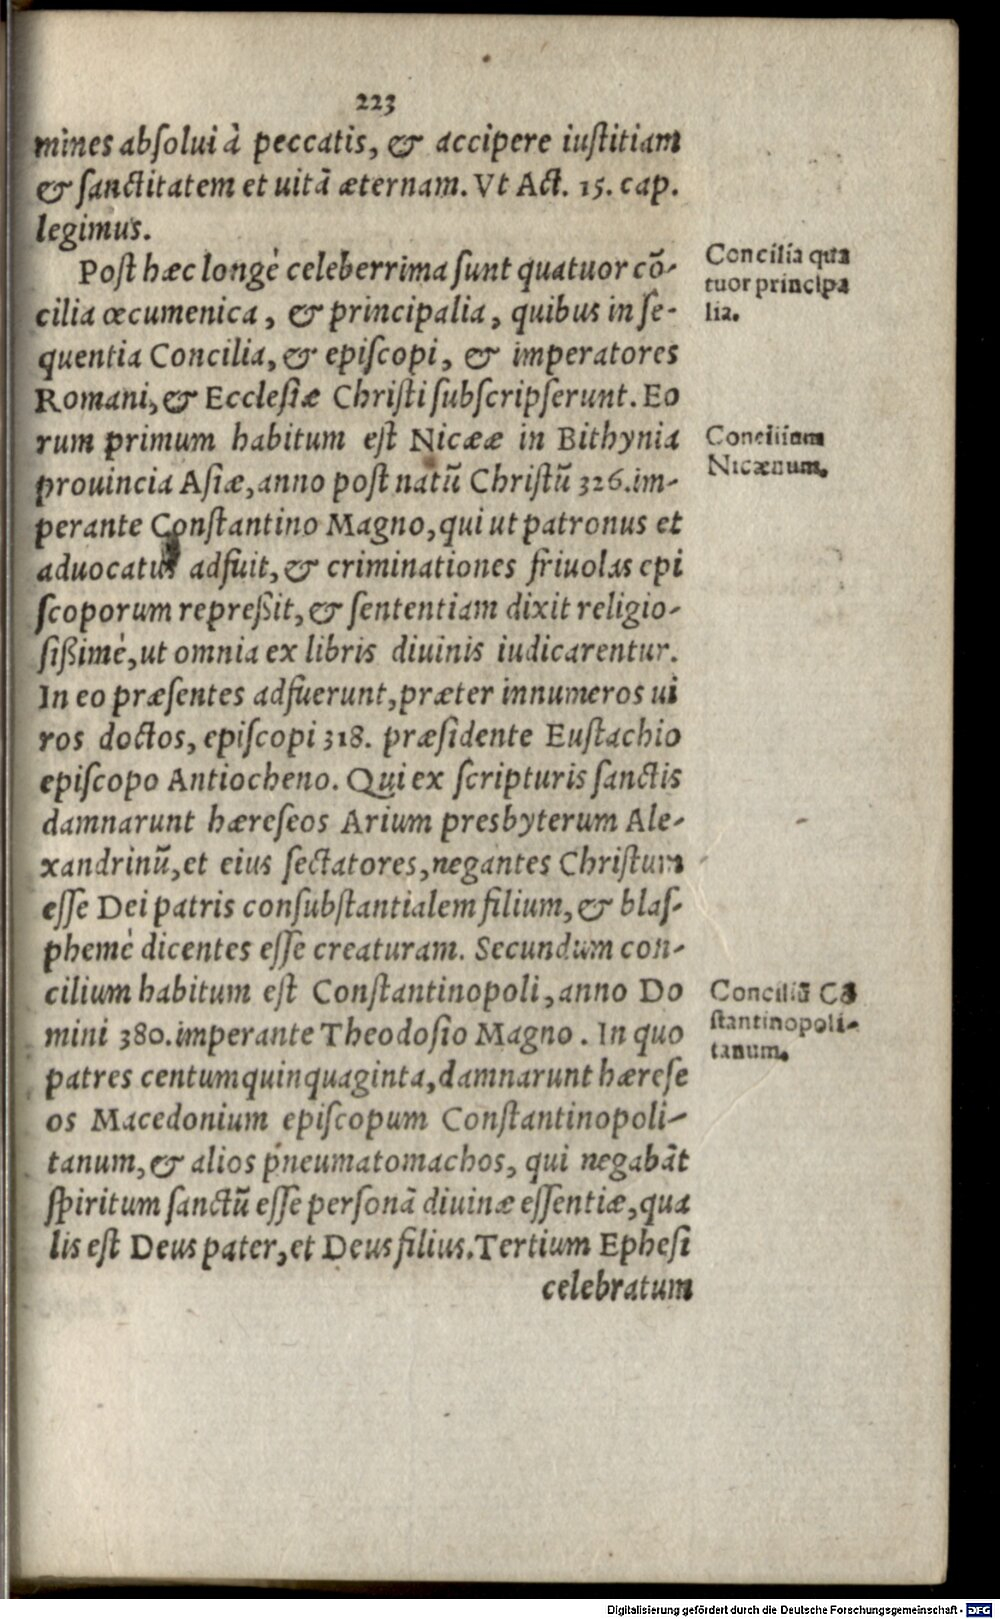 223
mines absolui à peccatis, & accipere iustitiam
& sanctitatem et uitã æternam. Vt Act. 15. cap.
legimus.
Post hæc longè celeberrima sunt quatuor cõ-
cilia œcumenica, & principalia, quibus in se-
quentia Concilia, & episcopi, & imperatores
Romani, & Ecclesiæ Christi subscripserunt. Eo
rum primum habitum est Nicææ in Bithynia
prouincia Asiæ, anno post natũ Christũ 326. im-
perante Constantino Magno, qui ut patronus et
aduocatus adfuit, & criminationes friuolas epi
scoporum repreßit, & sententiam dixit religio-
sißimè, ut omnia ex libris diuinis iudicarentur.
In eo præsentes adfuerunt, præter innumeros ui
ros doctos, episcopi 318. præsidente Eustachio
episcopo Antiocheno. Qui ex scripturis sanctis
damnarunt hæreseos Arium presbyterum Ale-
xandrinũ, et eius sectatores, negantes Christum
esse Dei patris consubstantialem filium, & blas-
phemè dicentes esse creaturam. Secundum con-
cilium habitum est Constantinopoli, anno Do
mini 380. imperante Theodosio Magno. In quo
patres centumquinquaginta, damnarunt hærese
os Macedonium episcopum Constantinopoli-
tanum, & alios pneumatomachos, qui negabãt
spiritum sanctũ esse personã diuinæ essentiæ, qua
lis est Deus pater, et Deus filius. Tertium Ephesi
celebratum
Concilia qua
tuor principa
lia.
Concilium
Nicænum.
Conciliũ Cõ
stantinopoli-
tanum.
Digitalisierung gefördert durch die Deutsche Forschungsgemeinschaft - DFG